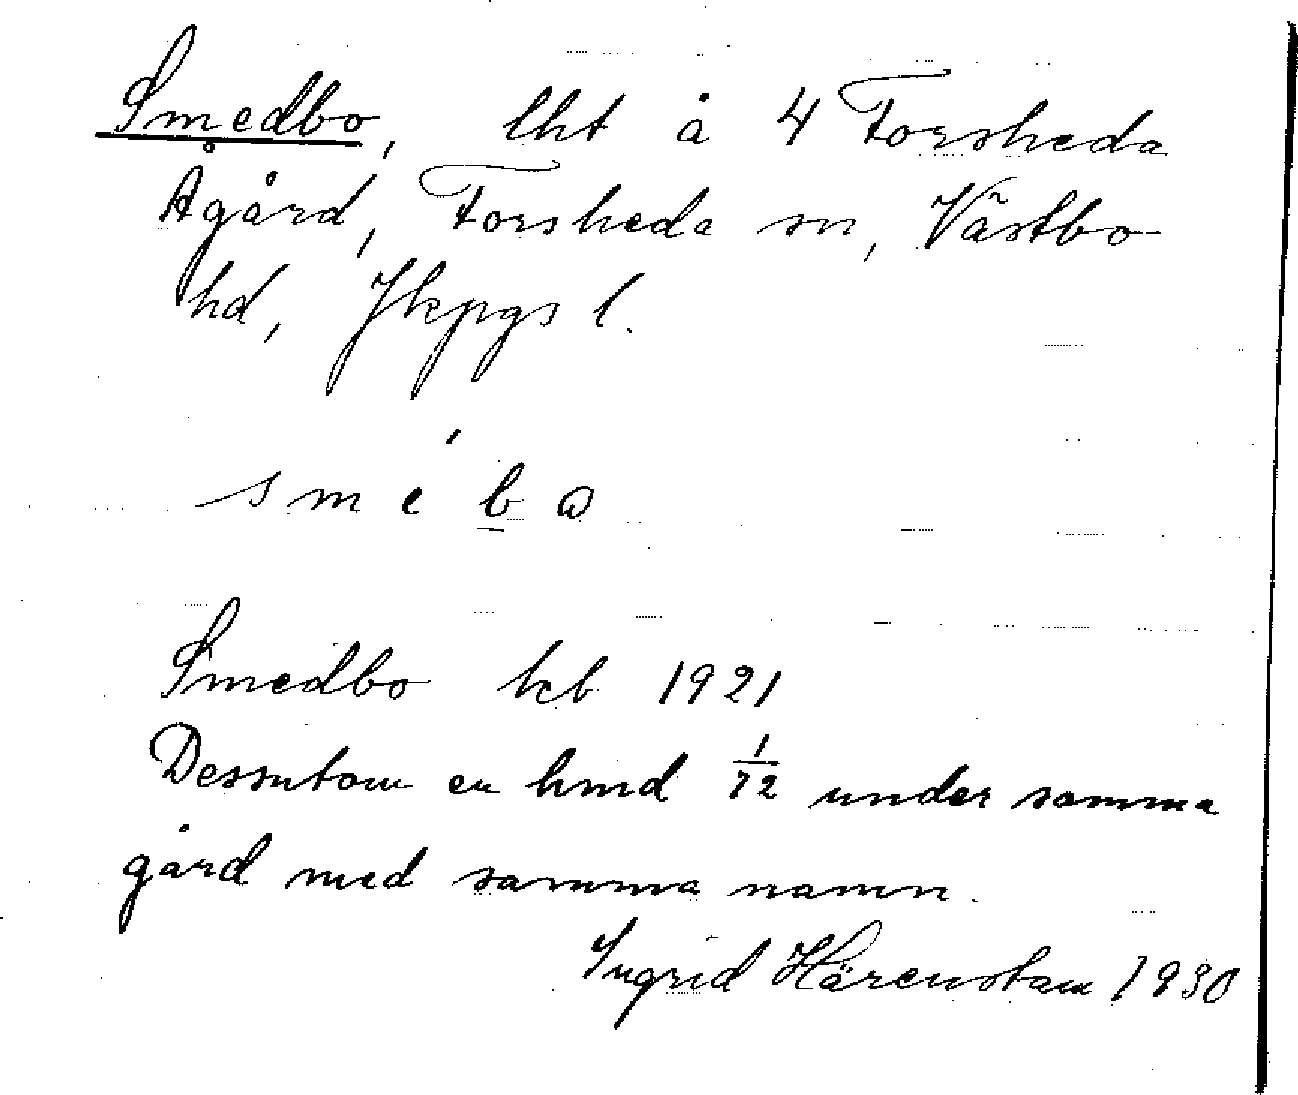 Smedbo, lht å 4 Forsheda
Ågård, Forsheda sn, Västbo
hd, Jkpgs l.
smé b ω
Smedbo kb 1921
Dessutom en hmd 1/72 under samma
gård med samma namn.
Ingrid Härenstam 1930